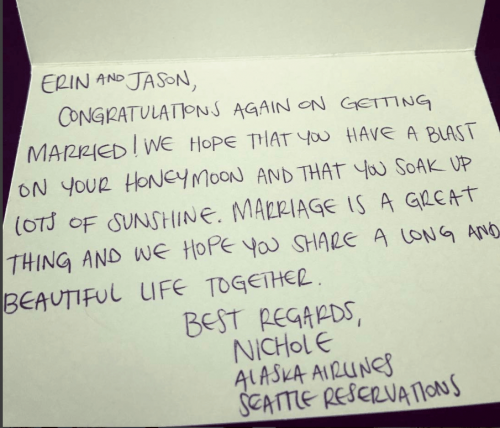 ERIN AND JASON,
CONGRATULATIONS AGAIN ON GETTING
MARRIED! WE HOPE THAT YOU HAVE A BLAST
ON YOUR HONEYMOON AND THAT YOU SOAK UP
LOTS OF SUNSHINE. MARRIAGE IS A GREAT
THING AND WE HOPE YOU SHARE A LONG AND
BEAUTIFUL LIFE TOGETHER.
BEST REGARDS,
NICHOLE
ALASKA AIRLINES
SEATTLE RESERVATIONS